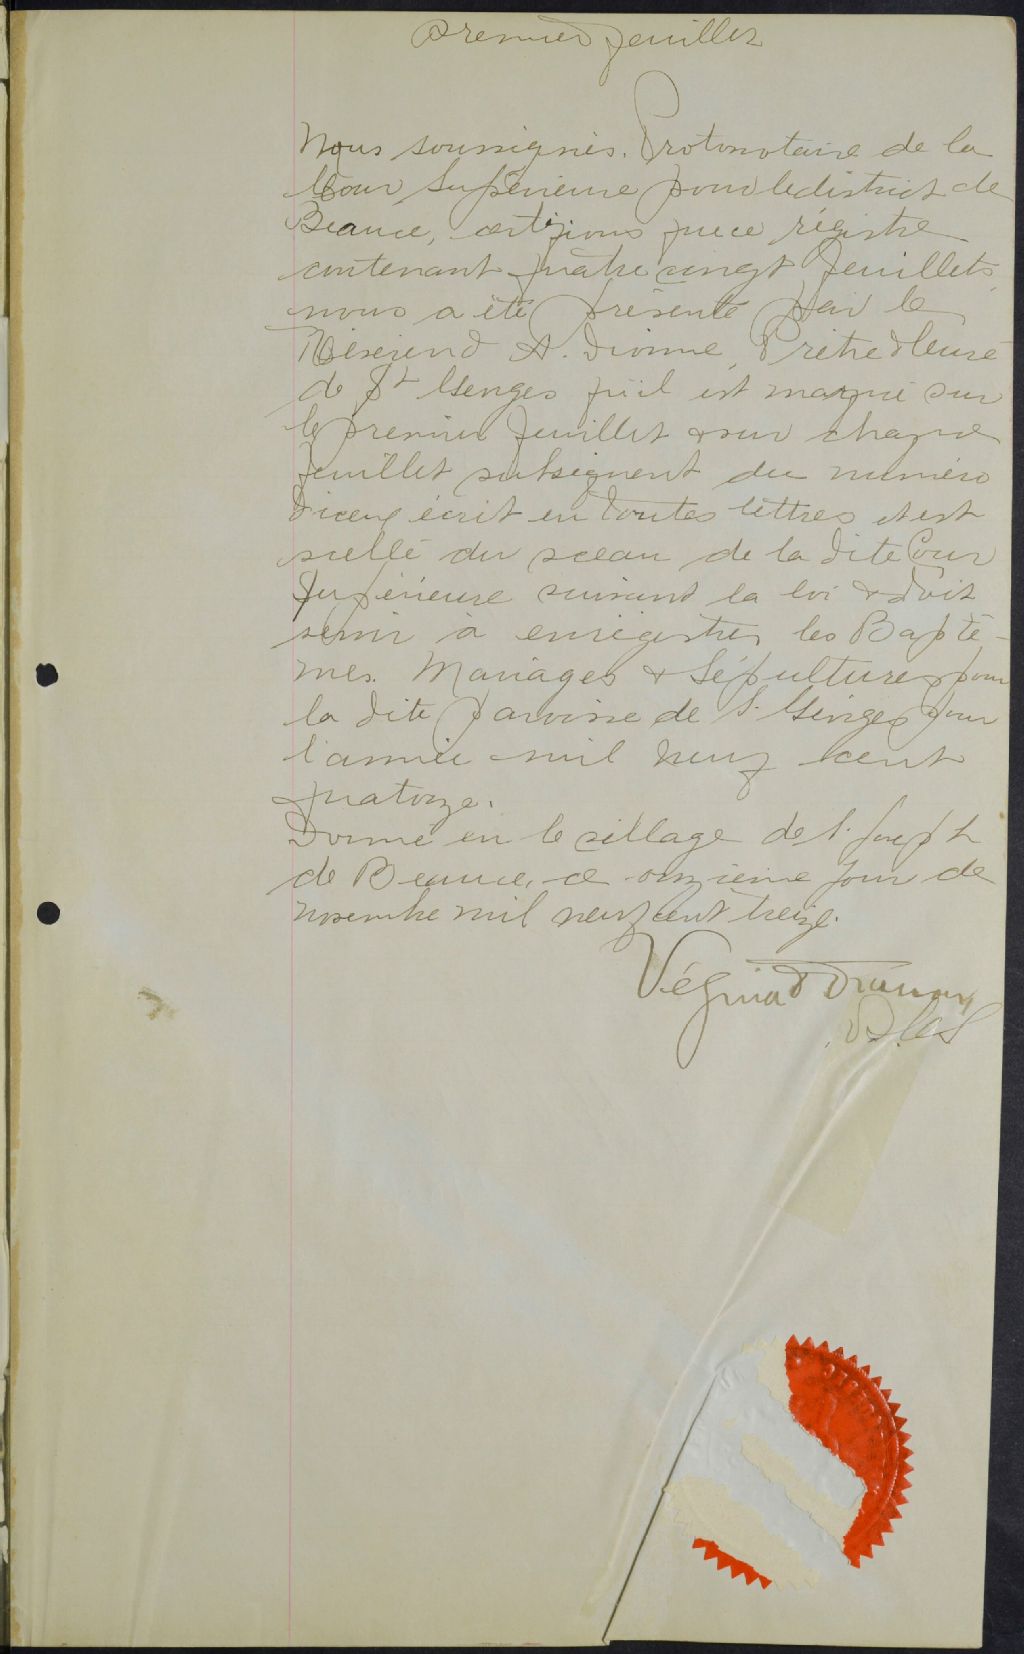 premier feuillet
Nous soussignés. Protonotaire de la
Cour Supérieure pour le district de
Beauce, certifions que ce régistre
contenant quatre vingt feuillets
nous a été présenté par le
Révérend A. Dionne, Prêtre & Curé
de St Georges qu'il est marqué sur
le premier feuillet & sur chaque
feuillet subséquent du numéro
d'iceux écrit en toutes lettres et est
scellé du sceau de la dite Cour
Supérieure suivant la loi & doit
servir à enrégistrer les Baptê-
mes. Mariages & Sépultures pour
la dite paroisse de S. Georges pour
l'année mil neuf cent
quatorze.
Donné en le village de S. Joseph
de Beauce, ce onzième jour de
novembre mil neuf cent treize.
Vézina &